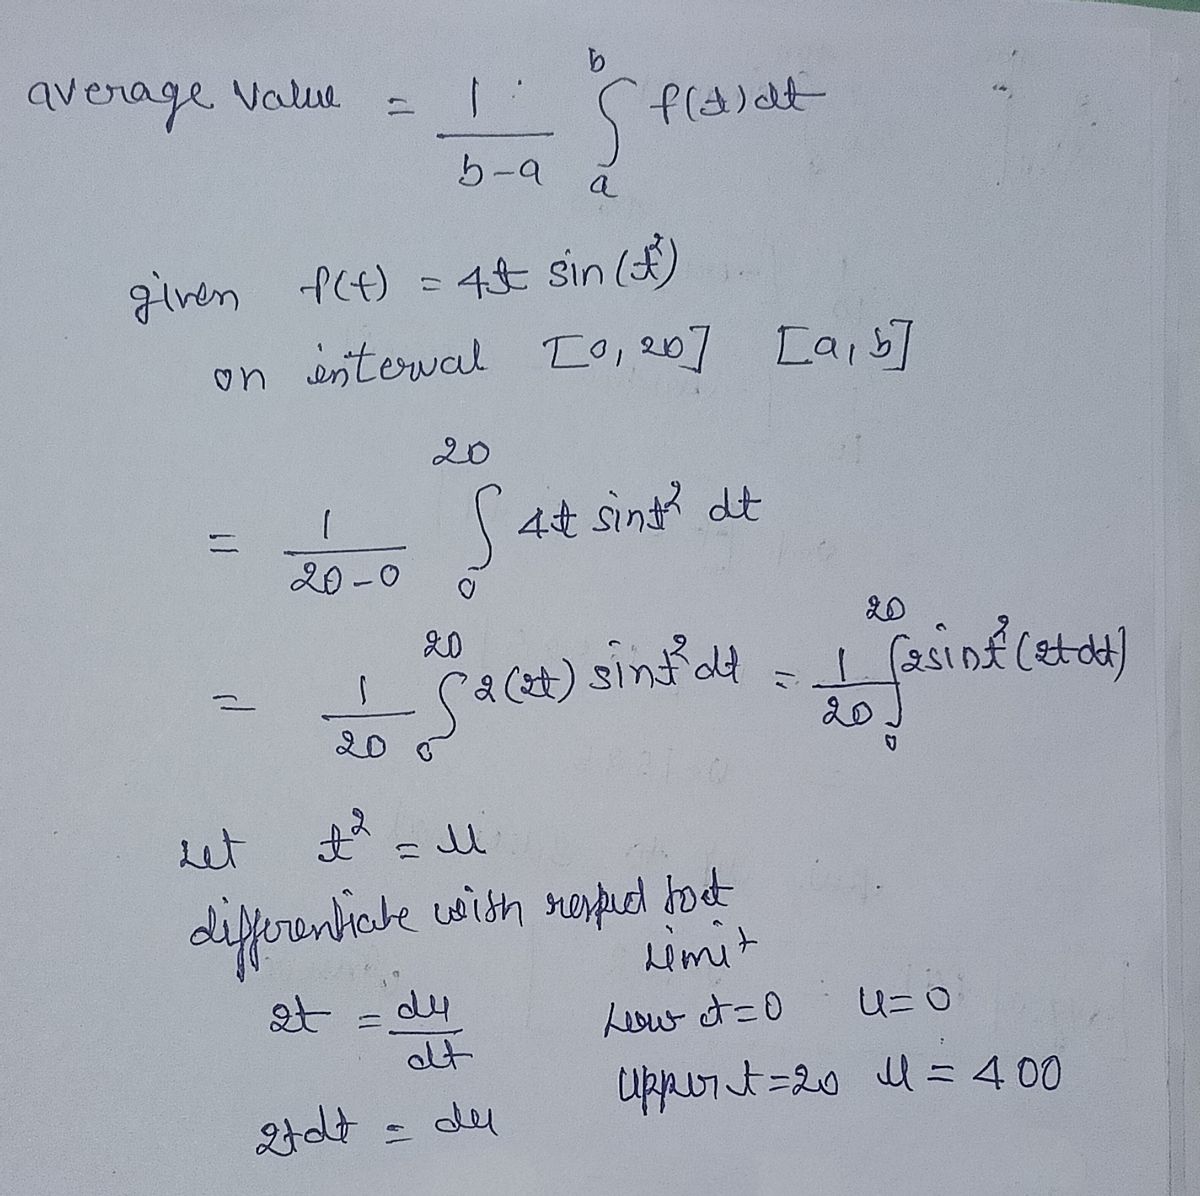 average value = 1/(b-a) ∫_a^b f(t)dt
given f(t) = 4t sin(t²)
on interval [0, 20] [a, b]
= 1/(20-0) ∫_0^20 4t sint² dt
= 1/20 ∫_0^20 2(2t) sint² dt = 1/20 ∫_0^20 2sint² (2t dt)
Let t² = u
differentiate with respect to t
Limit
2t = du/dt Low t=0 u=0
upper t=20 u=400
2tdt = du